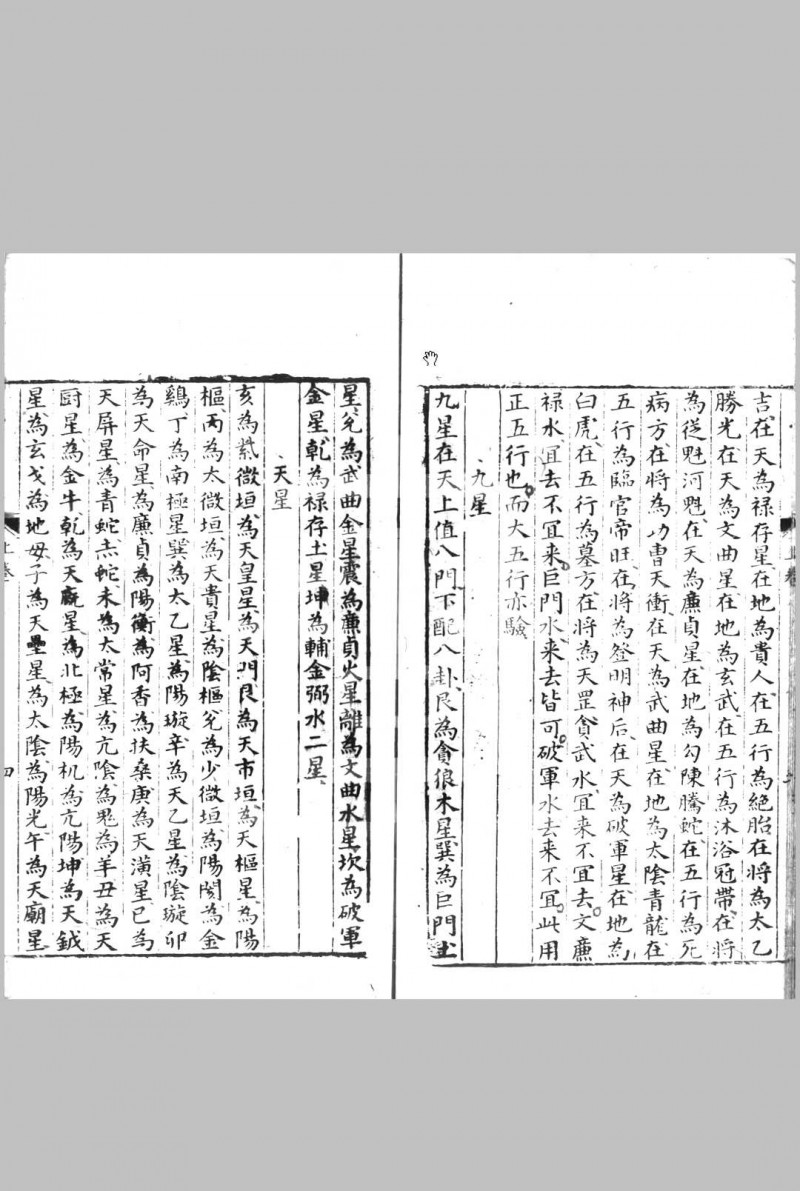 吉在天為禄存星在地為貴人在五行為絕胎在將為太乙
勝光在天為文曲星在地為玄武在五行為沐浴冠帶在將
為從魁河魁在天為廉貞星在地為勾陳騰蛇在五行為死
病方在將為功曹天衝在天為武曲星在地為太陰青龍在
五行為臨官帝旺在將為登明神后在天為破軍星在地為
白虎在五行為墓方在將為天罡貪武水宜来不宜去文廉
禄水宜去不宜来巨門水来去皆可破軍水去来不宜此用
正五行也而大五行亦驗
、九星
九星在天上值八門下配八卦艮為貪狼木星巽為巨門土
星兊為武曲金星震為廉貞火星離為文曲水星坎為破軍
金星乾為禄存土星坤為輔金弼水二星
、天星
亥為紫微垣為天皇星為天門艮為天市垣為天樞星為陽
樞丙為太微垣為天貴星為陰樞兊為少微垣為陽閣為金
鷄丁為南極星巽為太乙星為陽璇辛為天乙星為陰璇卯
為天命星為廉貞為陽衡為阿香為扶桑庚為天潢星巳為
天屏星為青蛇赤蛇未為太常星為亢陰為鬼為羊丑為天
厨星為金牛乾為天廐星為北極為陽机為亢陽坤為天鉞
星為玄戈為地母子為天壘星為太陰為陽光午為天廟星
上卷
四
上卷